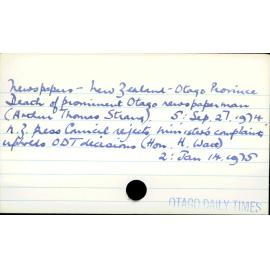 Newspapers - New Zealand - Otago Province
Death of prominent Otago newspaperman
(Arthur Thomas Strang). 5: Sep. 27. 1974.
N.Z. Press Council rejects minister's complaint,
upholds ODT decisions (Hon. H. Watt)
2: Jan 14. 1975
OTAGO DAILY TIMES